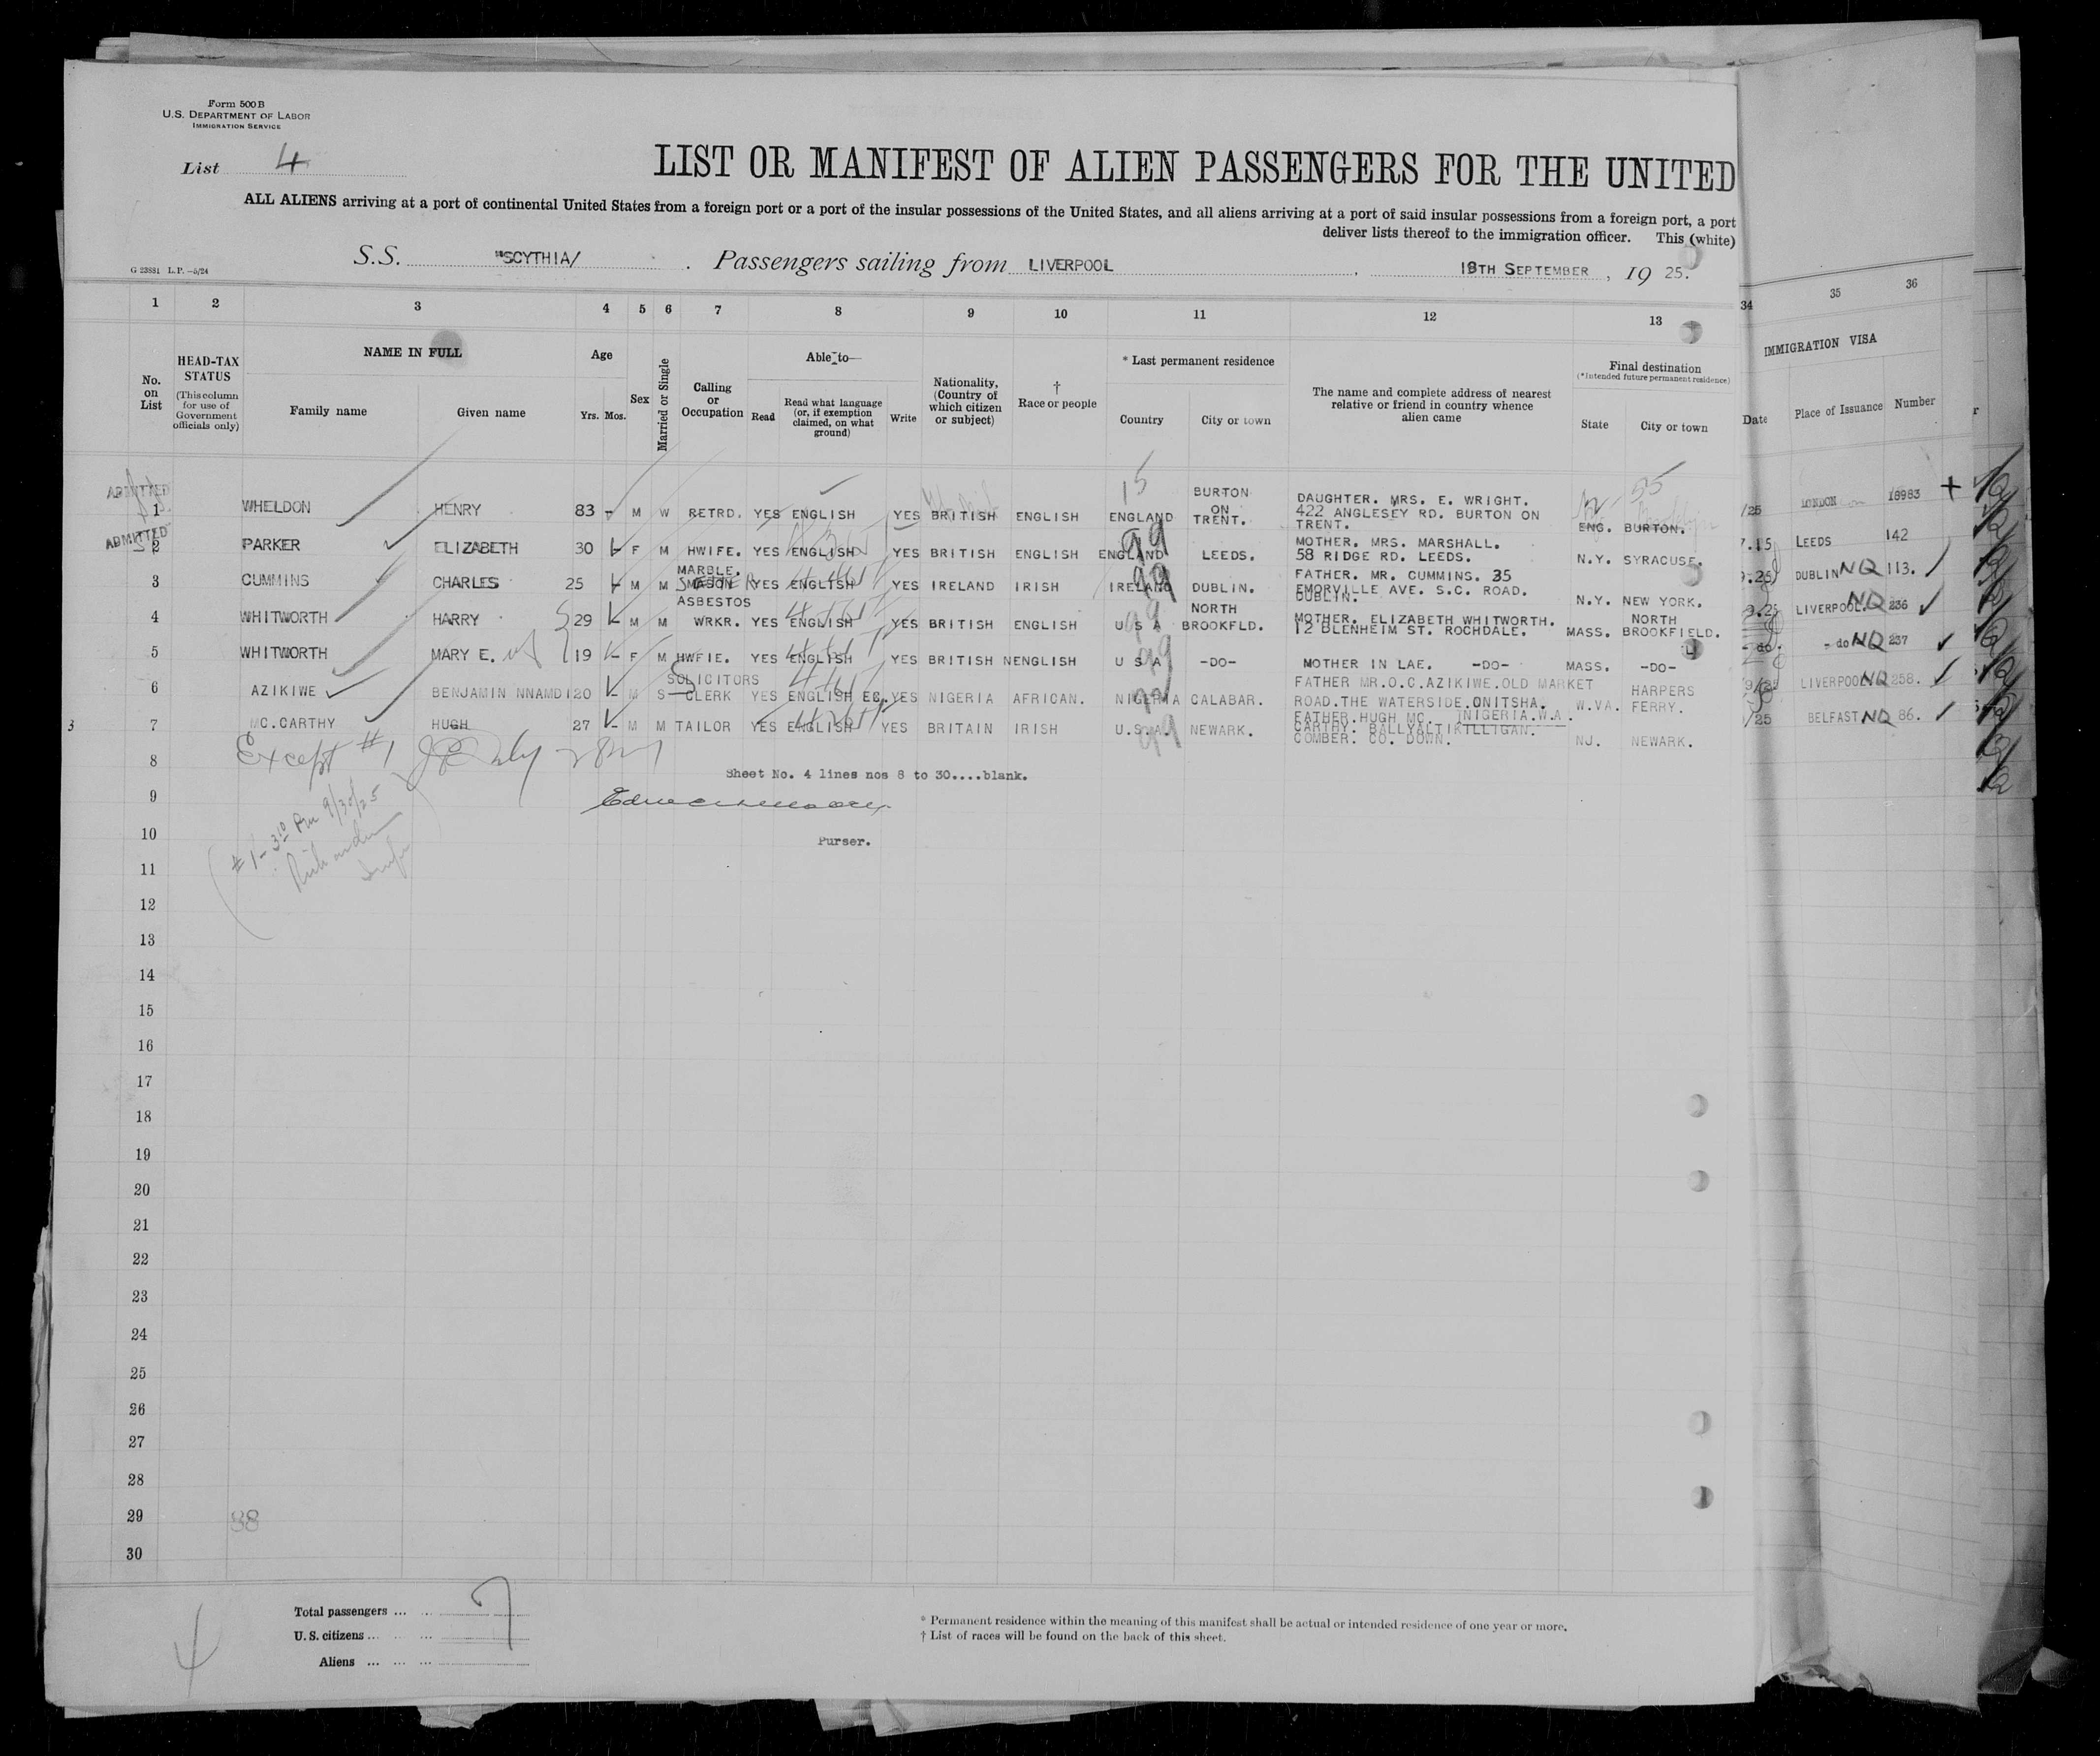 Form 500 B
U.S. DEPARTMENT OF LABOR
IMMIGRATION SERVICE
List 4
LIST OR MANIFEST OF ALIEN PASSENGERS FOR THE UNITED
ALL ALIENS arriving at a port of continental United States from a foreign port or a port of the insular possessions of the United States, and all aliens arriving at a port of said insular possessions from a foreign port, a port
deliver lists thereof to the immigration officer. This (white)
G 23881 L.P. —5/24
S.S. "SCYTHIA/ . Passengers sailing from LIVERPOOL , 19TH SEPTEMBER , 19 25.
1 2 3 4 5 6 7 8 9 10 11 12 13 34 35 36
No. on List
HEAD-TAX STATUS
(This column for use of Government officials only)
NAME IN FULL
Family name Given name
Age
Yrs. Mos.
Sex
Married or Single
Calling or Occupation
Able to—
Read
Read what language (or, if exemption claimed, on what ground)
Write
Nationality, (Country of which citizen or subject)
† Race or people
* Last permanent residence
Country City or town
The name and complete address of nearest relative or friend in country whence alien came
Final destination
(*Intended future permanent residence)
State City or town
IMMIGRATION VISA
Date Place of Issuance Number
ADMITTED
1 WHELDON HENRY 83 - M W RETRD. YES ENGLISH YES BRITISH ENGLISH ENGLAND BURTON ON TRENT. DAUGHTER. MRS. E. WRIGHT. 422 ANGLESEY RD. BURTON ON TRENT. ENG. BURTON. /25 LONDON 18983
ADMITTED
2 PARKER ELIZABETH 30 - F M HWIFE. YES ENGLISH YES BRITISH ENGLISH ENGLAND LEEDS. MOTHER. MRS. MARSHALL. 58 RIDGE RD. LEEDS. N.Y. SYRACUSE. LEEDS 142
3 CUMMINS CHARLES 25 - M M MARBLE. YES ENGLISH YES IRELAND IRISH IRELAND DUBLIN. FATHER. MR. CUMMINS. 35 EMORVILLE AVE. S.C. ROAD. DUBLIN. N.Y. NEW YORK. DUBLIN NQ 113.
4 WHITWORTH HARRY 29 - M M ASBESTOS WRKR. YES ENGLISH YES BRITISH ENGLISH U S A NORTH BROOKFLD. MOTHER. ELIZABETH WHITWORTH. 12 BLENHEIM ST. ROCHDALE. MASS. NORTH BROOKFIELD. LIVERPOOL. NQ 236
5 WHITWORTH MARY E. 19 - F M HWFIE. YES ENGLISH YES BRITISH NENGLISH U S A -DO- MOTHER IN LAE. -DO- MASS. -DO- - do. - do NQ 237
6 AZIKIWE BENJAMIN NNAMDI 20 - M S SOLICITORS CLERK YES ENGLISH EC. YES NIGERIA AFRICAN. NIGERIA CALABAR. FATHER MR.O.C.AZIKIWE.OLD MARKET ROAD.THE WATERSIDE.ONITSHA. NIGERIA.W.A. W.VA. HARPERS FERRY. LIVERPOOL NQ 258.
3
7 MC.CARTHY HUGH 27 - M M TAILOR YES ENGLISH YES BRITAIN IRISH U.S.A. NEWARK. FATHER.HUGH MC. CARTHY. BALLYALTIKILLIGAN. COMBER. CO. DOWN. NJ. NEWARK. /25 BELFAST NQ 86.
Except #1
8
Sheet No. 4 lines nos 8 to 30....blank.
9
#1- 3 10 Pm 9/30/25
10
Purser.
11
12
13
14
15
16
17
18
19
20
21
22
23
24
25
26
27
28
29 88
30
Total passengers ... ... 7
U. S. citizens ... ... ...
Aliens ... ... ...
4
* Permanent residence within the meaning of this manifest shall be actual or intended residence of one year or more.
† List of races will be found on the back of this sheet.